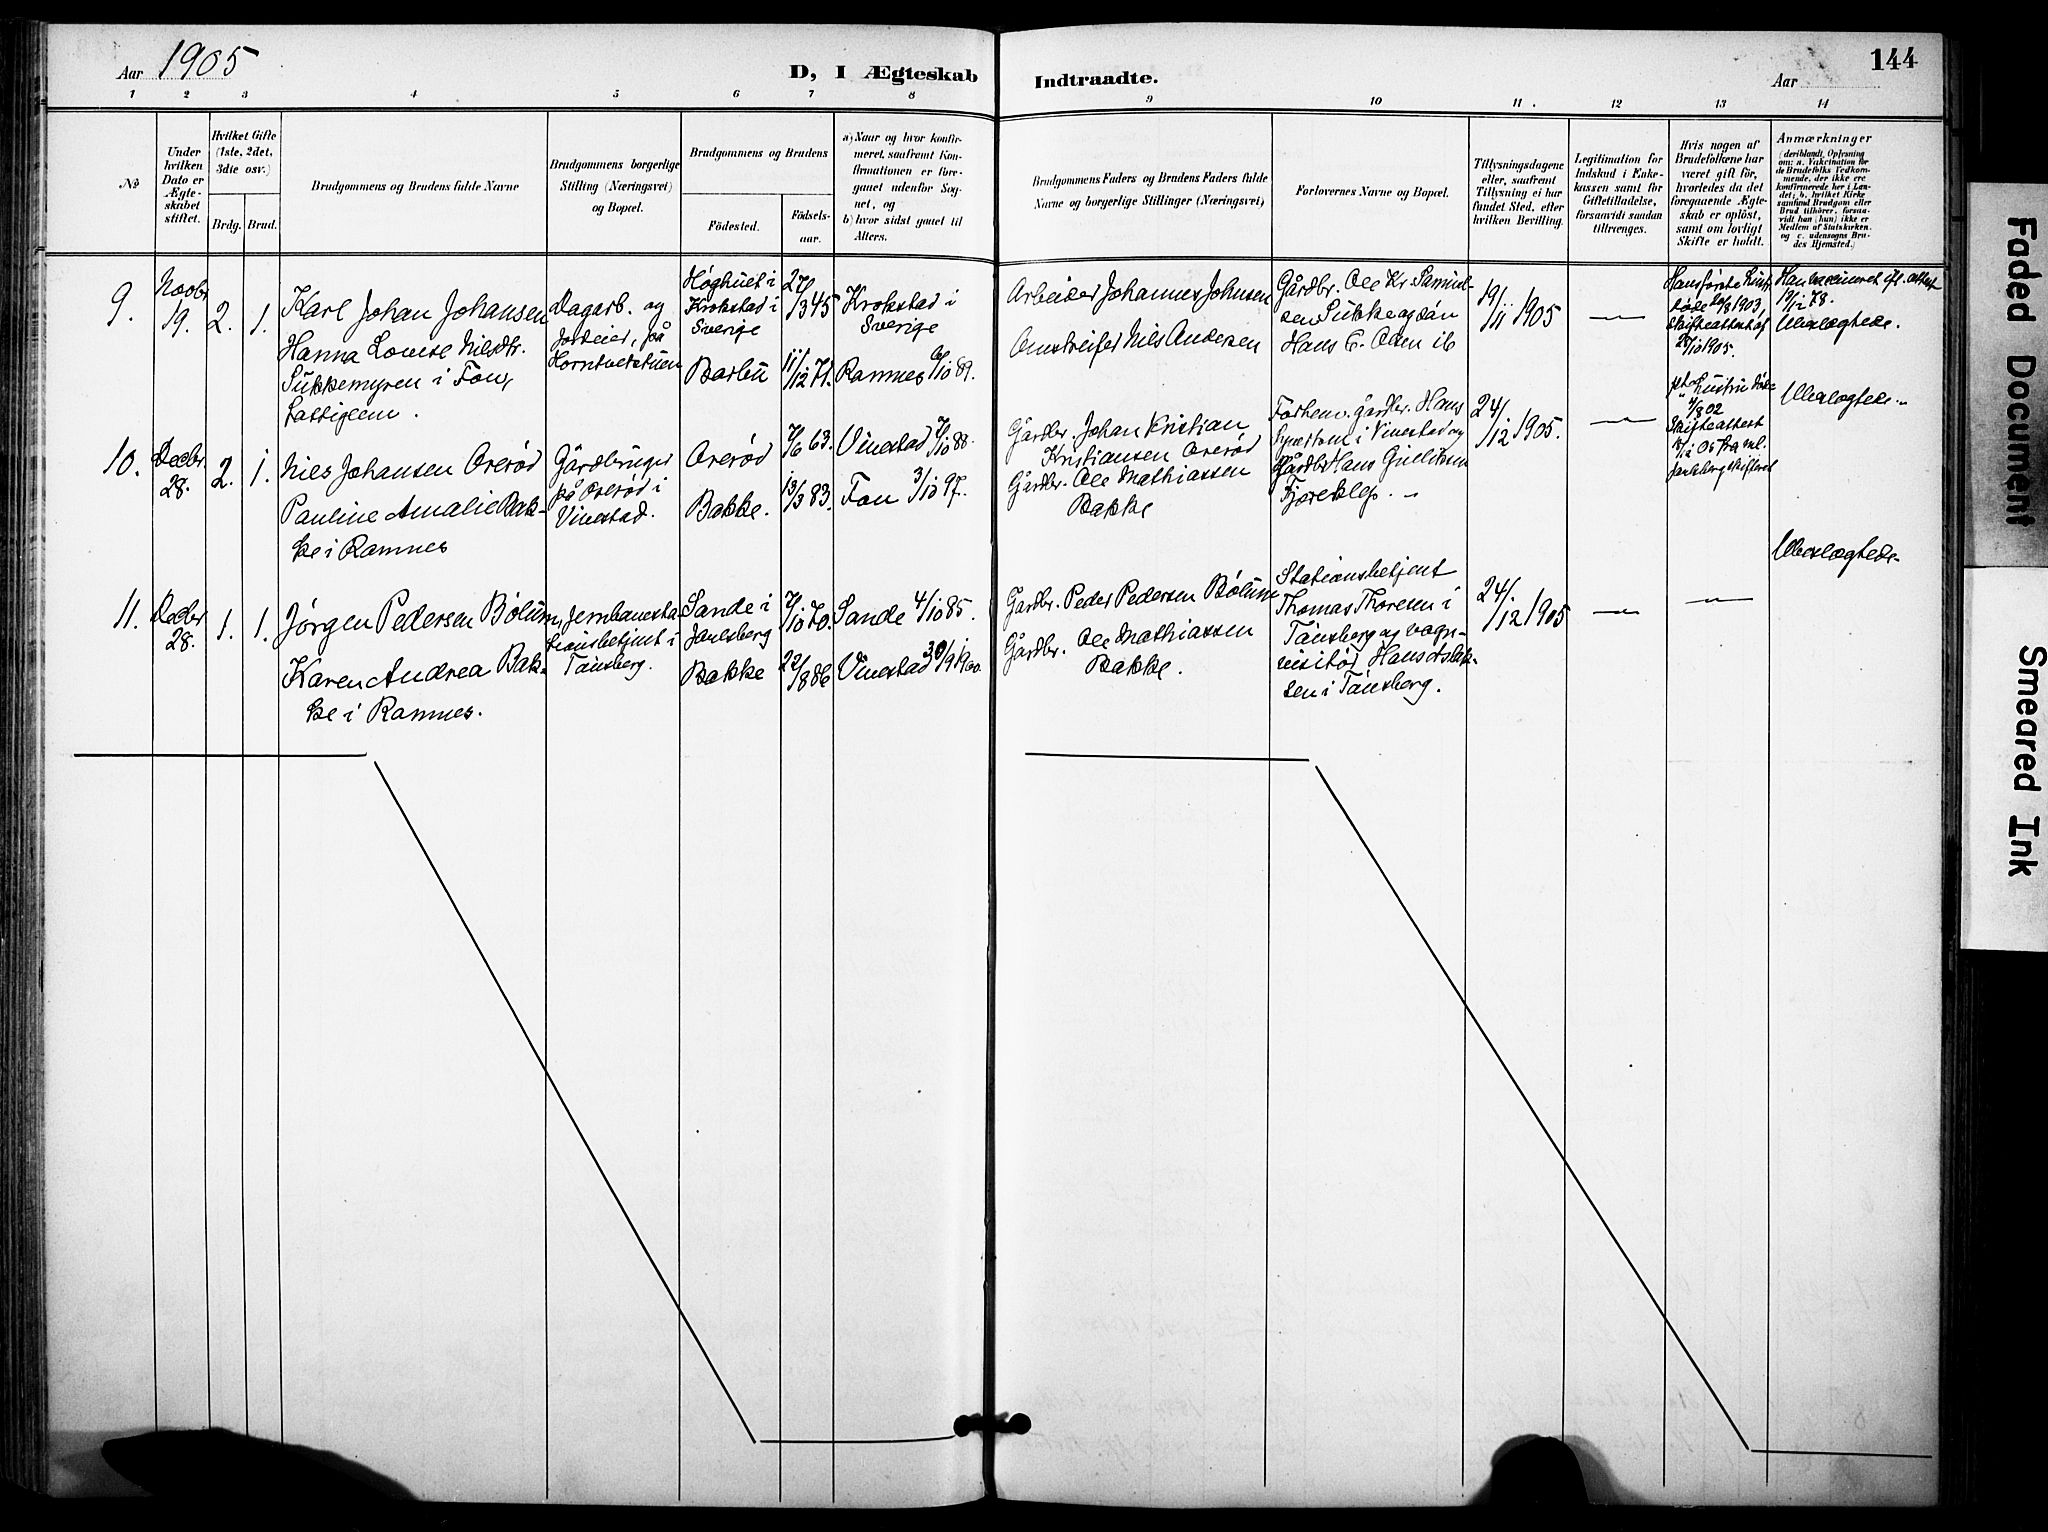 Aar 1905
D, I Ægteskab
Indtraadte.
Aar
144
1 2 3 4 5 6 7 8 9 10 11. 12 13 14
No
Under
hvilken
Dato er
Ægte-
skabet
stiftet.
Hvilket Gifte
(1ste, 2det,
3die osv.)
Brdg. Brud.
Brudgommens og Brudens fulde Navne
Brudgommens borgerlige
Stilling (Næringsvei)
og Bopæl.
Brudgommens og Brudens
Fødested.
Fødsels-
aar.
a) Naar og hvor konfir-
meret, saafremt Kon-
firmationen er fore-
gaaet udenfor Sog-
net, og
b) hvor sidst gaaet til
Alters.
Brudgommens Faders og Brudens Faders fulde
Navne og borgerlige Stillinger (Næringsvei)
Forlovernes Navne og Bopæl.
Tillysningsdagene
eller, saafremt
Tillysning ei har
fundet Sted, efter
hvilken Bevilling.
Legitimation for
Indskud i Enke-
kassen samt for
Giftetilladelse,
forsaavidt saadan
tiltrænges.
Hvis nogen af
Brudefolkene har
været gift før,
hvorledes da det
foregaaende Ægte-
skab er opløst,
samt om lovligt
Skifte er holdt.
Anmærkninger
(deriblandt Oplysning
om: a. Vakcination for
de Brudefolks Vedkom-
mende, der ikke ere
konfirmerede her i Lan-
det; b. hvilket Kirke-
samfund Brudgom eller
Brud tilhører, forsaa-
vidt han (hun) ikke er
Medlem af Statskirken.
og c. udensogns Bru-
des Hjemsted.)
9.
Novbr
19.
2. 1.
Karl Johan Johansen
Hanna Lovise Nilsdtr.
Sukkemyren i Fon,
Lattigeem.
Dagarb. og
jordeier, på
Horntvetstuen
Høghuet i
Krokstad i
Sverige
Barbu
27/3 45
11/12 71.
Krokstad i
Sverige
Ramnes 6/10 89.
Arbeider Johannes Johnsen
Omstreifer Nils Andersen
Gårdbr. Ole Kr. Samuel-
sen Sukke og søn
Hans E. Olsen ib
19/11 1905
—
Hans første Hust-
døde 20/8 1903,
skifteattest af
24/10 1905.
Han vaccineret eft. attest
19/1 78.
Ubeslægtede.
10.
Decbr
28.
2. 1.
Nils Johansen Orerød
Pauline Amalie Bak-
ke i Ramnes
Gårdbruger
på Orerød i
Vivestad.
Orerød
Bakke.
7/6 63.
13/3 83.
Vivestad 7/10 88.
Fon 3/10 97.
Gårdbr. Johan Kristian
Kristiansen Orerød
Gårdbr. Ole Mathiassen
Bakke
Forhenv. gårdbr. Hans
i Vivestad og
Gårdbr Hans Gulliksen
Fjæreklep. —
24/12 1905.
—
Hustru døde
4/8 02
Skifteattest
Jarlsberg skifteret
Ubeslægtede.
11.
Decbr
28.
1. 1.
Jørgen Pedersen Bølum,
Karen Andrea Bak-
ke i Ramnes.
Jernbanesta-
tionsbetjent i
Tønsberg.
Sande i
Jarlsberg
Bakke
7/10 70.
22/8 86
Sande 4/10 85.
Vivestad 30/9 1900
Gårdbr. Peder Pedersen Bølum
Gårdbr. Ole Mathiassen
Bakke.
Stationsbetjent
Thomas Thoresen i
Tønsberg og vogn-
visitør Hans Aslak-
sen i Tønsberg.
24/12 1905
—
—
Ubeslægtede
Faded Document
Smeared Ink